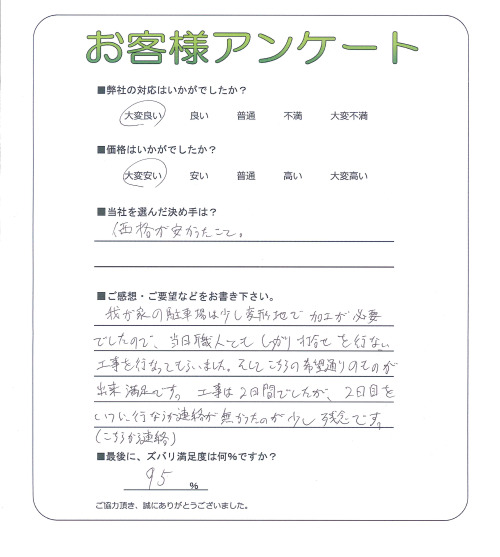 お客様アンケート
■弊社の対応はいかがでしたか？
大変良い 良い 普通 不満 大変不満
■価格はいかがでしたか？
大変安い 安い 普通 高い 大変高い
■当社を選んだ決め手は？
価格が安かったこと。
■ご感想・ご要望などをお書き下さい。
我が家の駐車場は少し変形地で 加工が必要
でしたので、当日職人さんとも しっかり 打合せ を行ない
工事を行なってもらいました。そしてこちらの希望通りのものが
出来 満足です。 工事は2日間でしたが、2日目を
いつに行なうか連絡が無かったのが 少し 残念です。
(こちらから連絡)
■最後に、ズバリ満足度は何％ですか？
95 ％
ご協力頂き、誠にありがとうございました。